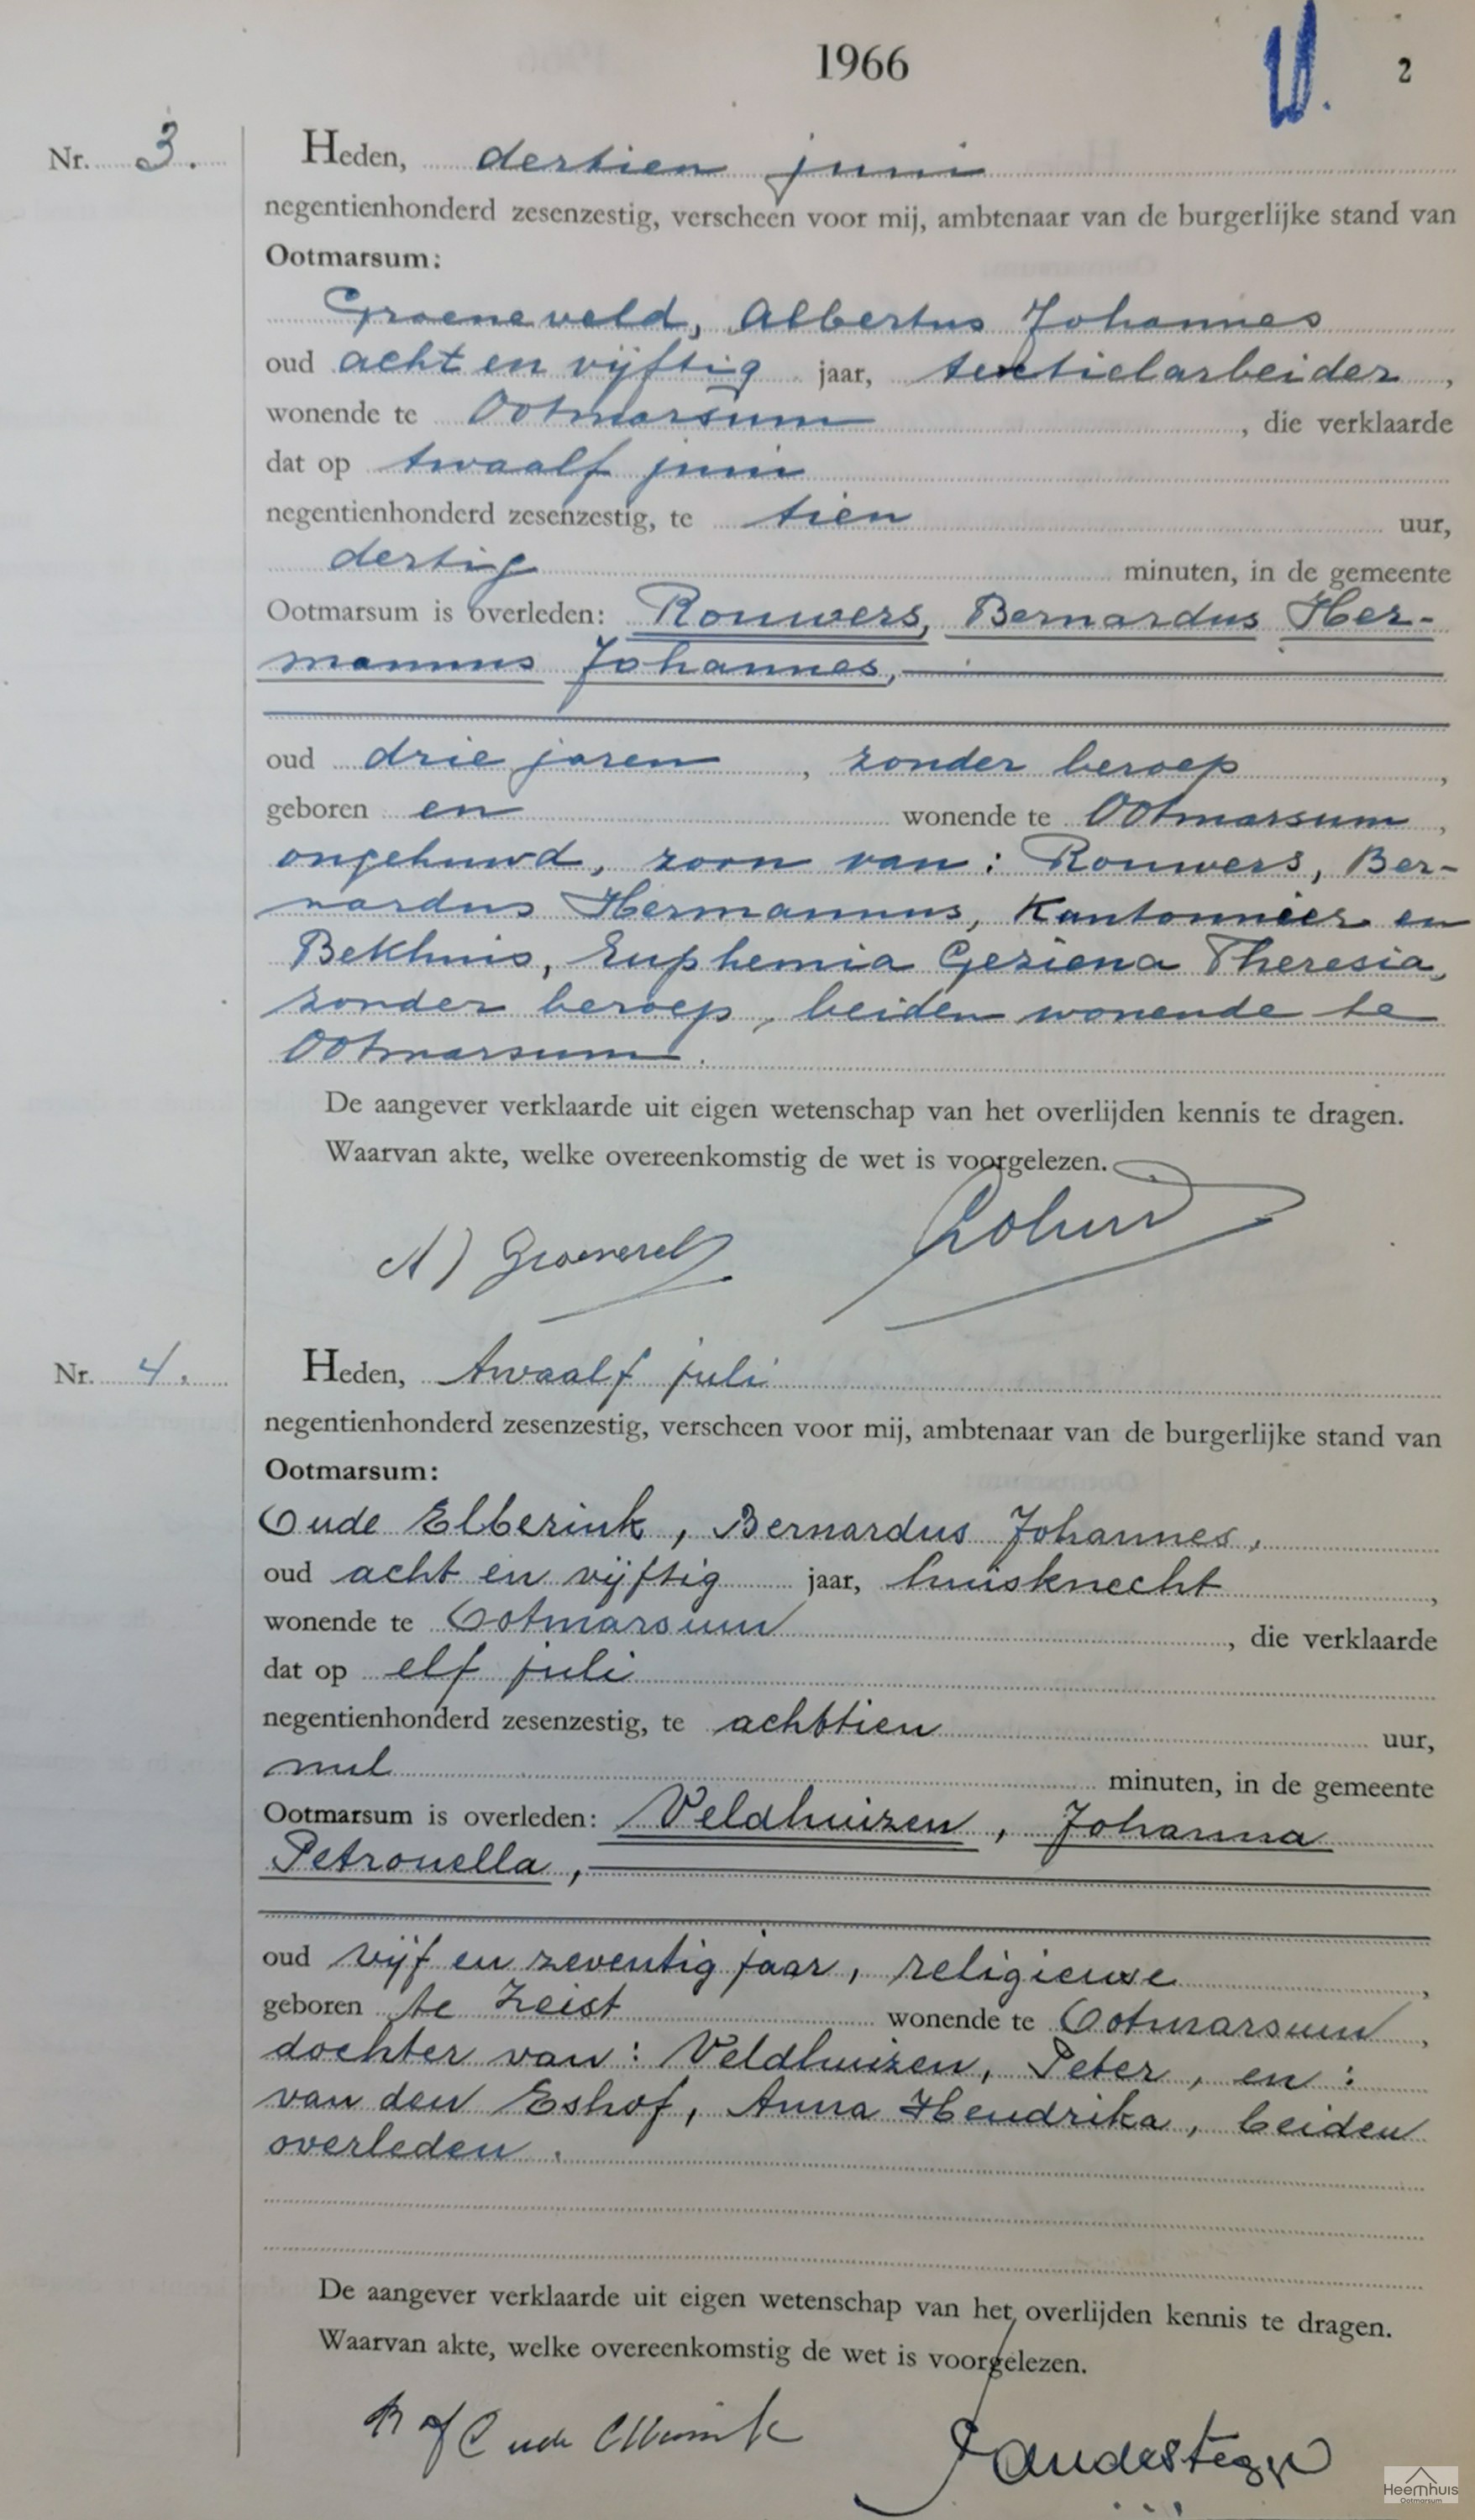 1966
2
Nr. 3.
Heden, dertien juni
negentienhonderd zesenzestig, verscheen voor mij, ambtenaar van de burgerlijke stand van
Ootmarsum:
Groeneveld, Albertus Johannes
oud acht en vijftig jaar, textielarbeider,
wonende te Ootmarsum, die verklaarde
dat op twaalf juni
negentienhonderd zesenzestig, te tien uur,
dertig minuten, in de gemeente
Ootmarsum is overleden: Rouwers, Bernardus Her-
mannus Johannes,
oud drie jaren, zonder beroep,
geboren en wonende te Ootmarsum,
ongehuwd, zoon van: Rouwers, Ber-
nardus Hermannus, Kantonnier en
Bekhuis, Euphemia Geziena Theresia,
zonder beroep, beiden wonende te
Ootmarsum.
De aangever verklaarde uit eigen wetenschap van het overlijden kennis te dragen.
Waarvan akte, welke overeenkomstig de wet is voorgelezen.
AJ Groeneveld
Nr. 4.
Heden, twaalf juli
negentienhonderd zesenzestig, verscheen voor mij, ambtenaar van de burgerlijke stand van
Ootmarsum:
Oude Elberink, Bernardus Johannes,
oud acht en vijftig jaar, huisknecht,
wonende te Ootmarsum, die verklaarde
dat op elf juli
negentienhonderd zesenzestig, te achttien uur,
nul minuten, in de gemeente
Ootmarsum is overleden: Veldhuizen, Johanna
Petronella,
oud vijf en zeventig jaar, religieuse,
geboren te Zeist wonende te Ootmarsum,
dochter van: Veldhuizen, Peter, en:
van den Eshof, Anna Hendrika, beiden
overleden.
De aangever verklaarde uit eigen wetenschap van het overlijden kennis te dragen.
Waarvan akte, welke overeenkomstig de wet is voorgelezen.
Oude Elberink
Heemhuis
Ootmarsum